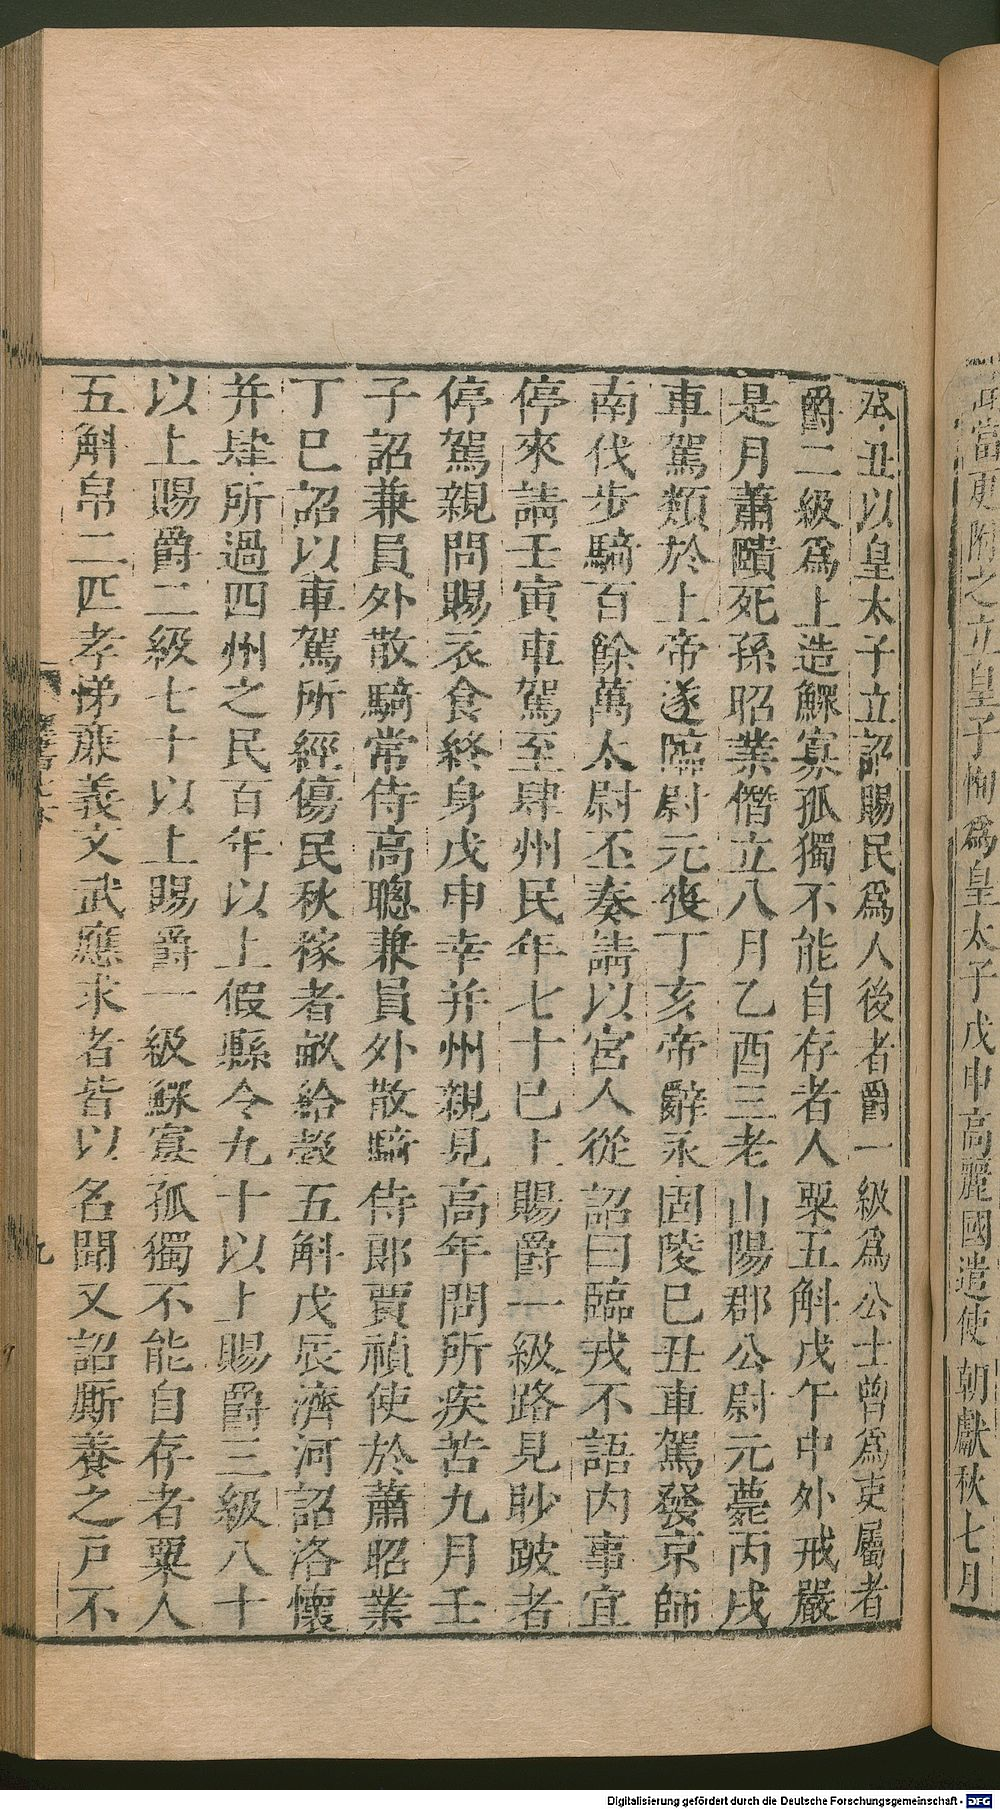 當更附之立皇子恂爲皇太子戊申高麗國遣使朝獻秋七月
癸丑以皇太子立詔賜民爲人後者爵一級爲公士曾爲吏屬者
爵二級爲上造鰥寡孤獨不能自存者人粟五斛戊午中外戒嚴
是月蕭賾死孫昭業僭立八月乙酉三老山陽郡公尉元薨丙戌
車駕類於上帝遂臨尉元喪丁亥帝辭永固陵已丑車駕發京師
南伐步騎百餘萬太尉丕奏請以宮人從詔曰臨戎不語內事宜
停來請壬寅車駕至肆州民年七十已上賜爵一級路見眇跛者
停駕親問賜衣食終身戊申幸并州親見高年問所疾苦九月壬
子詔兼員外散騎常侍高聰兼員外散騎侍郎賈禎使於蕭昭業
丁巳詔以車駕所經傷民秋稼者畝給穀五斛戊辰濟河詔洛懷
并肆所過四州之民百年以上假縣令九十以上賜爵三級八十
以上賜爵二級七十以上賜爵一級鰥寡孤獨不能自存者粟人
五斛帛二匹孝悌廉義文武應求者皆以名聞又詔厮養之戶不
九
Digitalisierung gefördert durch die Deutsche Forschungsgemeinschaft - DFG